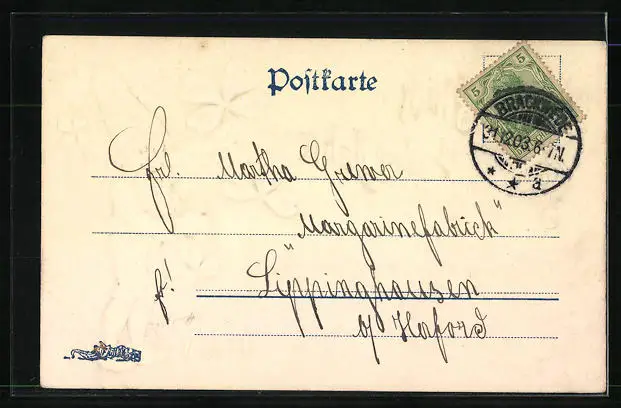 Postkarte
5 5
BRACKWEDE
31.12.03.6-7N.
* * a
Frl. Martha Grewer
"Margarinefabrick"
f! Lippinghausen
b/ Haford